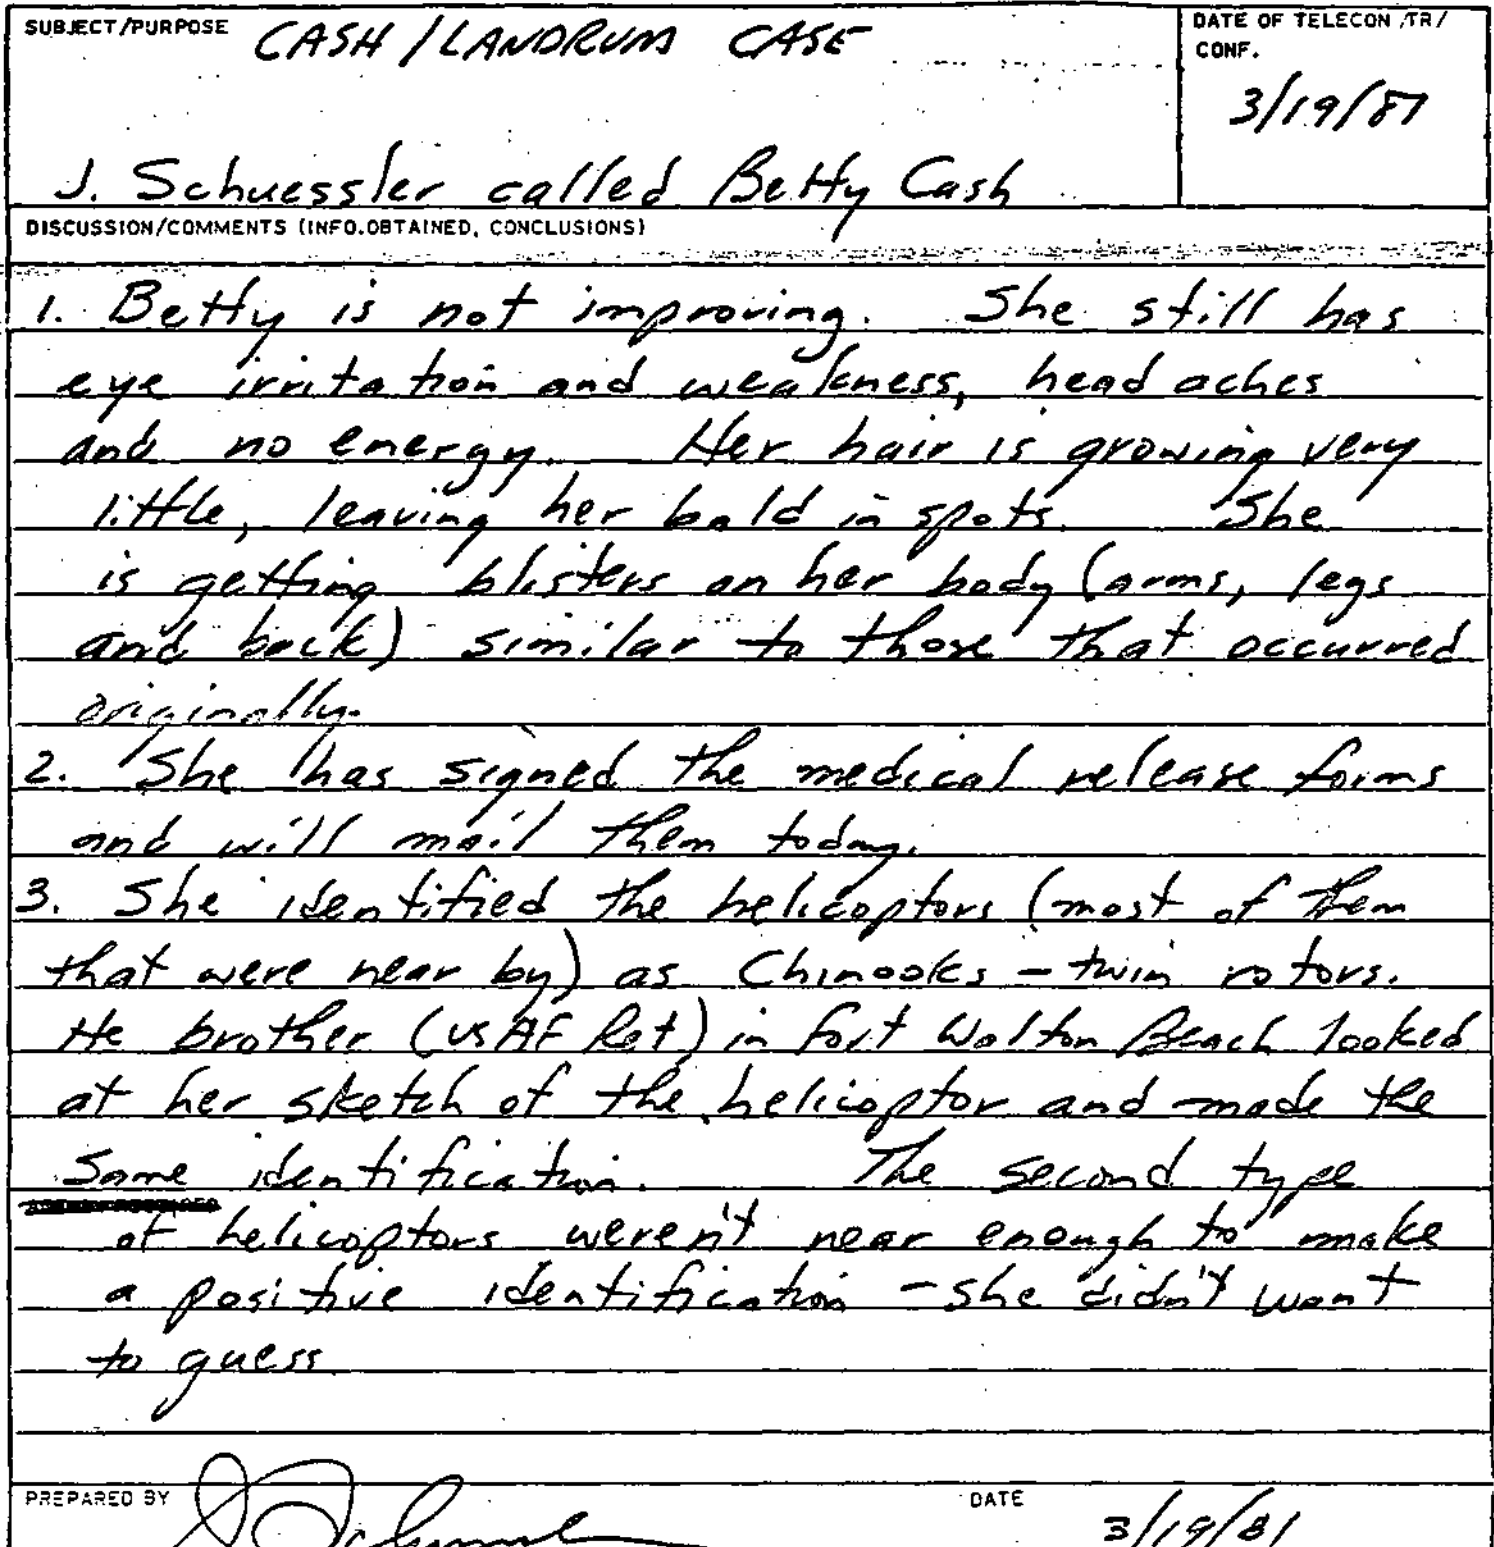 SUBJECT/PURPOSE CASH/LANDRUM CASE
DATE OF TELECON /TR/
CONF.
3/19/81
J. Schuessler called Betty Cash
DISCUSSION/COMMENTS (INFO.OBTAINED, CONCLUSIONS)
1. Betty is not improving. She still has
eye irritation and weakness, head aches
and no energy. Her hair is growing very
little, leaving her bald in spots. She
is getting blisters on her body (arms, legs
and back) similar to those that occurred
originally.
2. She has signed the medical release forms
and will mail them today.
3. She identified the helicoptors (most of them
that were near by) as Chinooks - twin rotors.
He brother (USAF Ret) in Fort Walton Beach looked
at her sketch of the helicoptor and made the
same identification. The second type
of helicoptors weren't near enough to make
a positive identification - she didn't want
to guess
PREPARED BY
DATE 3/19/81